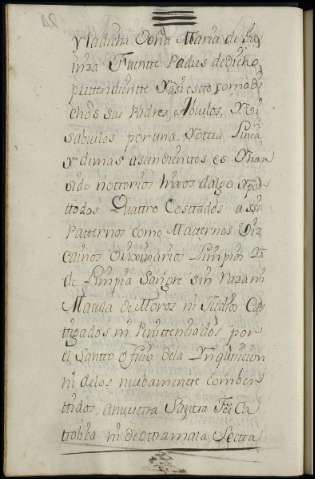 y la dicha Doña Maria de
Fuente Padres de dicho
pretendiente y asi estos como di
chos sus Padres, Abuelos, y Vi
sabuelos por una y otra Linea
y demas asendientes es y han
sido nottorios hixos dalgo y por
ttodos Quattro Costtados assi
Patternos como Matternos Viz
cainos Orixinarios Limpios
de Limpia Sangre sin Raza ni
Macula de Moros ni Judios Cas
tigados ni Penittenciados por
el Santto Oficio de la Ynquisicion
ni de los nuebamente comber
ttidos a nuestra Santta Fee Ca
ttholica ni de otra mala Sectta